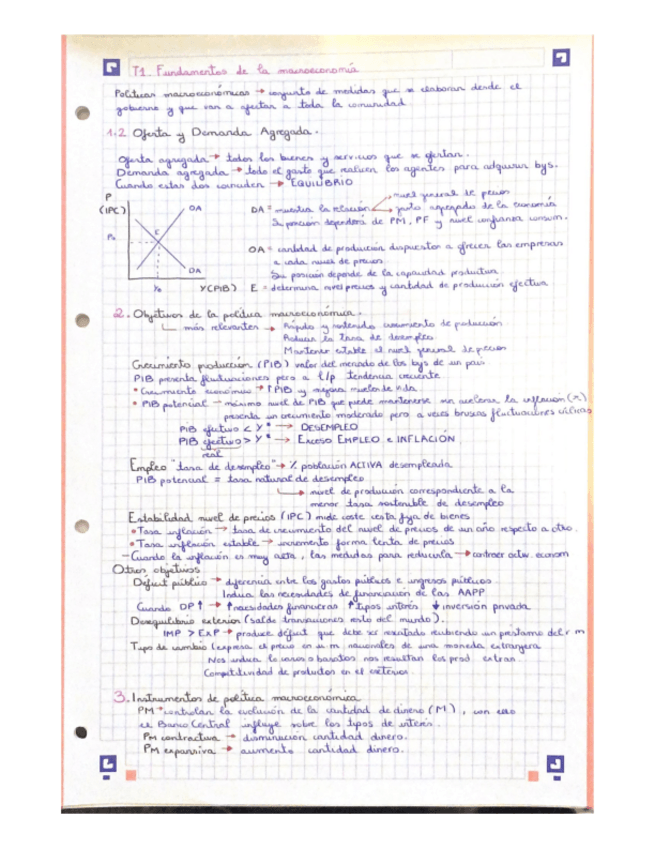 T1. Fundamentos de la macroeconomía
Políticas macroeconómicas → conjunto de medidas que se elaboran desde el
gobierno y que van a afectar a toda la comunidad.
1.2 Oferta y Demanda Agregada.
Oferta agregada → todos los bienes y servicios que se ofertan.
Demanda agregada → todo el gasto que realicen los agentes para adquirir bys.
Cuando estas dos coinciden → EQUILIBRIO
P
(IPC)
OA
P₀
E
DA
Y₀
Y(PIB)
DA = muestra la relación → nivel general de precios
→ gasto agregado de la economía
Su posición dependerá de PM, PF y nivel confianza consum.
OA = cantidad de producción dispuestos a ofrecer las empresas
a cada nivel de precios.
Su posición depende de la capacidad productiva
E = determina nivel precios y cantidad de producción efectiva
2. Objetivos de la política macroeconómica.
más relevantes → Rápido y sostenido crecimiento de producción
Reducir la tasa de desempleo
Mantener estable el nivel general de precios
Crecimiento producción (PIB) valor del mercado de los bys de un país
PIB presenta fluctuaciones pero a l/p tendencia creciente
• Crecimiento económico → ↑PIB y mejora niveles de vida
• PIB potencial → máximo nivel de PIB que puede mantenerse sin acelerar la inflación (π)
presenta un crecimiento moderado pero a veces bruscas fluctuaciones cíclicas
PIB efectivo < Y* → DESEMPLEO
PIB efectivo > Y* → EXCESO EMPLEO e INFLACIÓN
real
Empleo "tasa de desempleo" → % población ACTIVA desempleada
PIB potencial = tasa natural de desempleo
→ nivel de producción correspondiente a la
menor tasa sostenible de desempleo
Estabilidad nivel de precios (IPC) mide coste cesta fija de bienes
• Tasa inflación → tasa de crecimiento del nivel de precios de un año respecto a otro.
• Tasa inflación estable → incremento forma lenta de precios
- Cuando la inflación es muy alta, las medidas para reducirla → contraer activ. econom
Otros objetivos
Déficit público → diferencia entre los gastos públicos e ingresos públicos.
Indica las necesidades de financiación de las AAPP
Cuando DP↑ → ↑necesidades financieras ↑tipos interés ↓inversión privada
Desequilibrio exterior (saldo transacciones resto del mundo).
IMP > EXP → produce déficit que debe ser recibiendo un préstamo del r m
Tipo de cambio (expresa el precio en u.m. nacionales de una moneda extranjera
Nos indica lo caros o baratos nos resultan los prod. extran.
Competitividad de productos en el exterior.
3. Instrumentos de política macroeconómica
PM → controlan la evolución de la cantidad de dinero (M), con ello
el Banco Central influye sobre los tipos de interés.
PM contractiva → disminución cantidad dinero.
PM expansiva → aumento cantidad dinero.